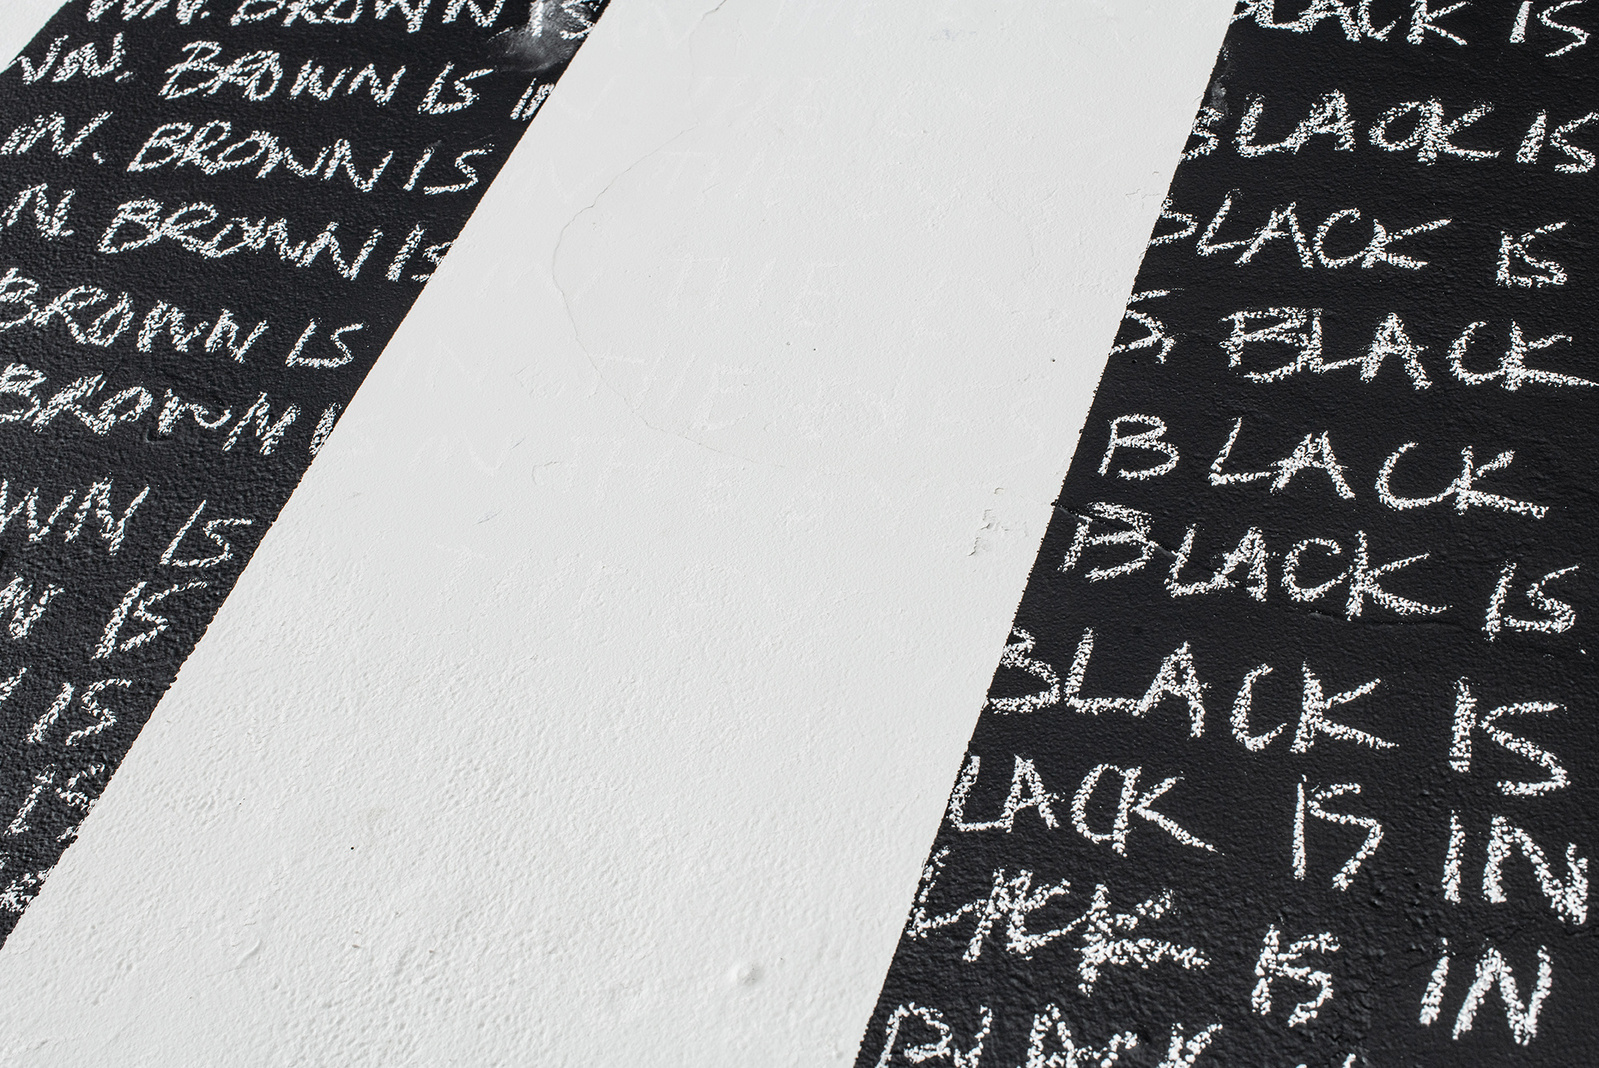 WN. BROWN IS
WN. BROWN IS IN
WN. BROWN IS
N. BROWN IS
BROWN IS
BROWN I
WN IS
N IS
IS
IS
BLACK IS
BLACK IS
BLACK IS
S, BLACK
BLACK
BLACK IS
BLACK IS
LACK IS IN
LACK IS IN
BLACK